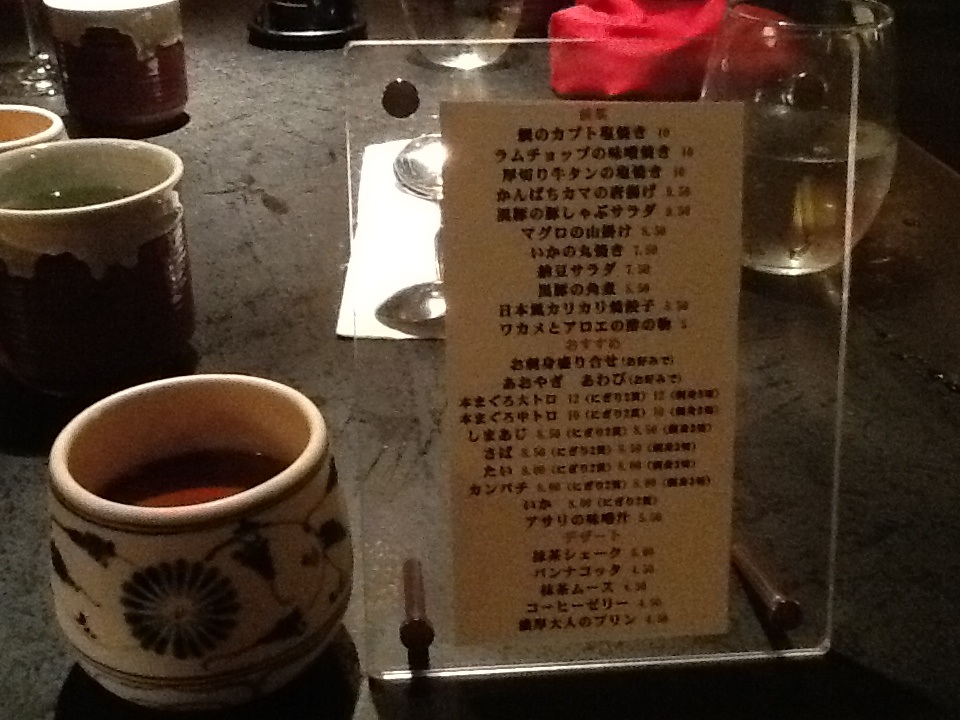 鯛のカブト塩焼き 10
ラムチョップの味噌焼き 10
厚切り牛タンの塩焼き 10
かんぱちカマの唐揚げ 9.50
黒豚の豚しゃぶサラダ 9.50
マグロの山掛け 8.50
いかの丸焼き 7.50
納豆サラダ 7.50
黒豚の角煮 8.50
日本風カリカリ焼餃子 8.50
ワカメとアロエの酢の物 5
おすすめ
お刺身盛り合せ(お好みで)
あおやぎ あわび(お好みで)
本まぐろ大トロ 12 (にぎり2貫) 12 (刺身3切)
本まぐろ中トロ 10 (にぎり2貫) 10 (刺身3切)
しまあじ 8.50 (にぎり2貫) 8.50 (刺身3切)
さば 8.50 (にぎり2貫) 8.50 (刺身3切)
たい 8.00 (にぎり2貫) 8.00 (刺身3切)
カンパチ 8.00 (にぎり2貫) 8.00 (刺身3切)
いか 8.00 (にぎり2貫)
アサリの味噌汁 5.50
デザート
抹茶シェーク 6.00
パンナコッタ 4.50
抹茶ムース 4.50
コーヒーゼリー 4.50
濃厚大人のプリン 4.50